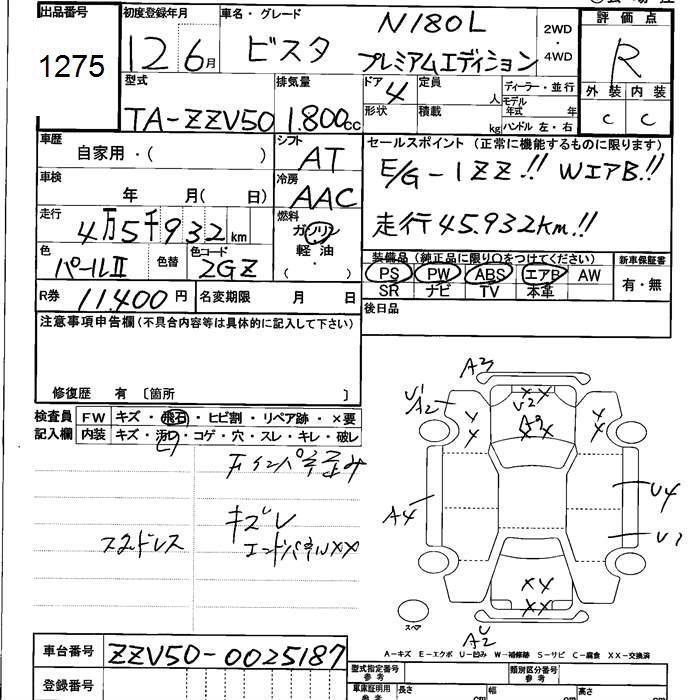 出品番号
1275
初度登録年月
12 6月
車名・グレード
ビスタ
N180L
プレミアムエディション
2WD
・
4WD
評価点
R
外装 内装
C C
型式
TA-ZZV50
排気量
1.800cc
ドア 4
形状
定員
人
積載
kg
ディーラー・並行
モデル年式 年
ハンドル 左・右
車歴
自家用・( )
シフト
AT
セールスポイント(正常に機能するものに限ります)
E/G-1ZZ!! WエアB!!
走行45.932km!!
車検
年 月( 日)
冷房
AAC
走行
4万5千932km
燃料
ガソリン
軽油
・( )
色
パールⅡ
色替
色コード
2GZ
装備品(純正品に限り○をつけてください)
PS PW ABS エアB AW
SR ナビ TV 本革
新車保証書
有・無
R券 11.400円
名変期限 月 日
後日品
注意事項申告欄(不具合内容等は具体的に記入して下さい)
修復歴 有〔箇所 〕
検査員
記入欄
FW キズ・飛石・ヒビ割・リペア跡・×要
内装 キズ・汚れ・コゲ・穴・スレ・キレ・破レ
キズレ
エンドパネルXX
スタッドレス
A3
U1
A2
XX
U2
A3
XX
A4
U4
XX
XX
U
A2
スペア
A-キズ E-エクボ U-凹み W-補修跡 S-サビ C-腐食 XX-交換済
車台番号 ZZV50-0025187
登録番号
型式指定番号
参考
類別区分番号
参考
車庫証明用
参考
長さ cm
幅 cm
高さ cm